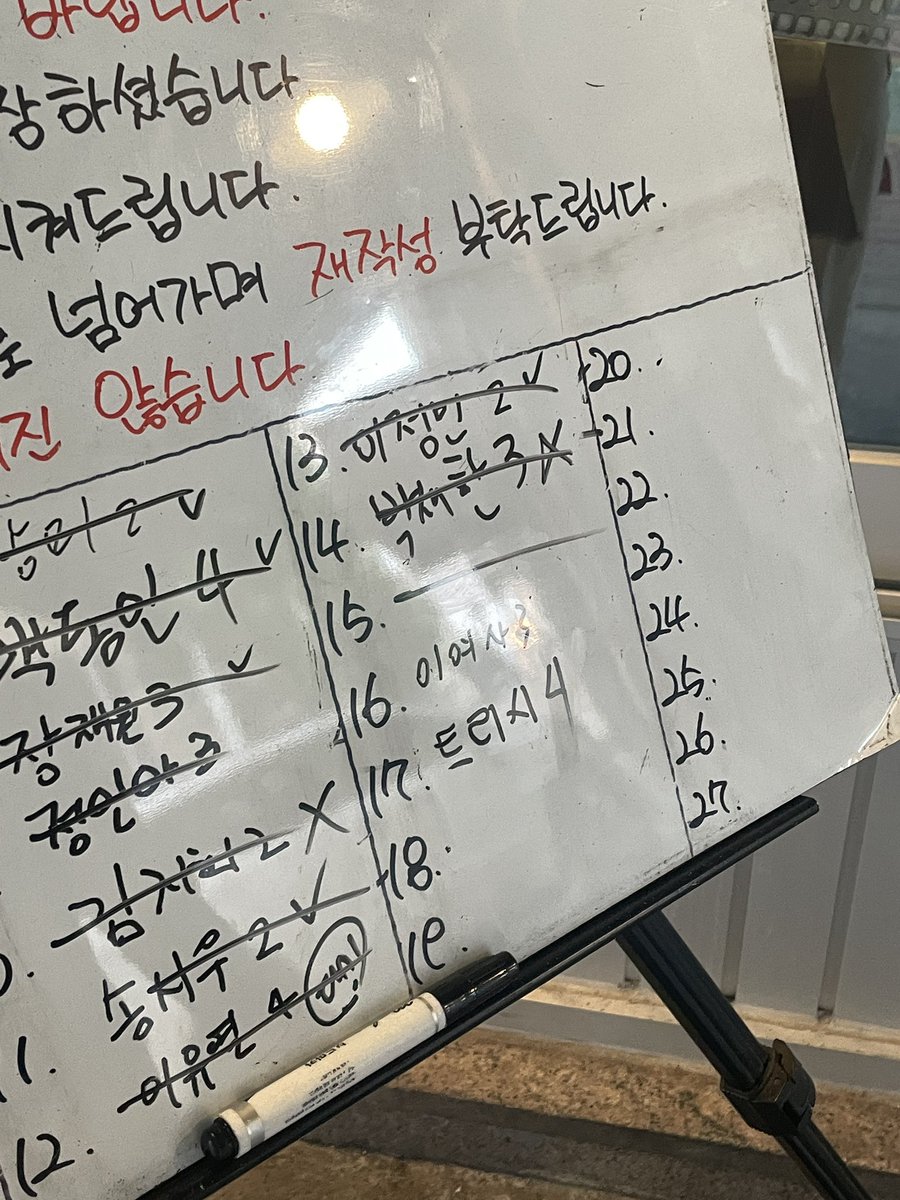 바랍니다.
장하셨습니다
시켜드립니다.
로 넘어가며 재작성 부탁드립니다.
진 않습니다
2 ✓
백동인 4 ✓
장재윤 3 ✓
정인아 3
김지희 2 X
송시우 2 ✓
11.
이유련 4
12.
13. 이정민 2 ✓
14. 박재한 3 X
15.
16. 이여사 3
17. 트러시 4
18.
19.
20.
21.
22.
23.
24.
25.
26.
27.